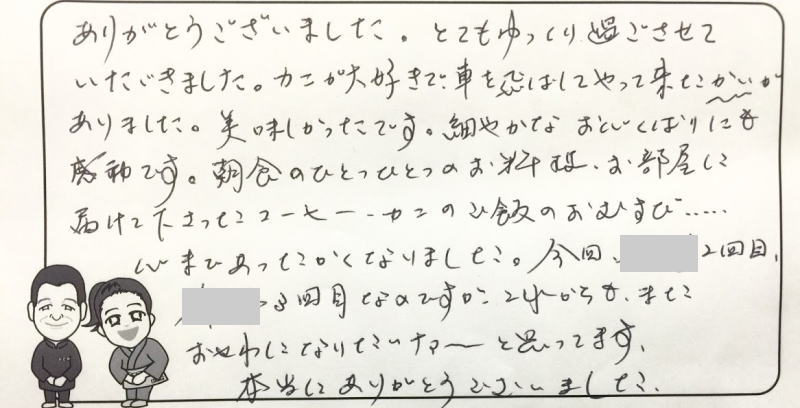 ありがとうございました。とてもゆっくり過ごさせて
いただきました。カニが大好きで、車を飛ばしてやって来たかいが
ありました。美味しかったです。細やかな おこころくばりにも
感動です。朝食のひとつひとつのお料理、お部屋に
届けて下さったコーヒー、カニのご飯のおむすび……
心まであったかくなりました。今回、2回目、
3回目なのですが これからも、また
おせわになりたいナァーと思ってます。
本当にありがとうございました。